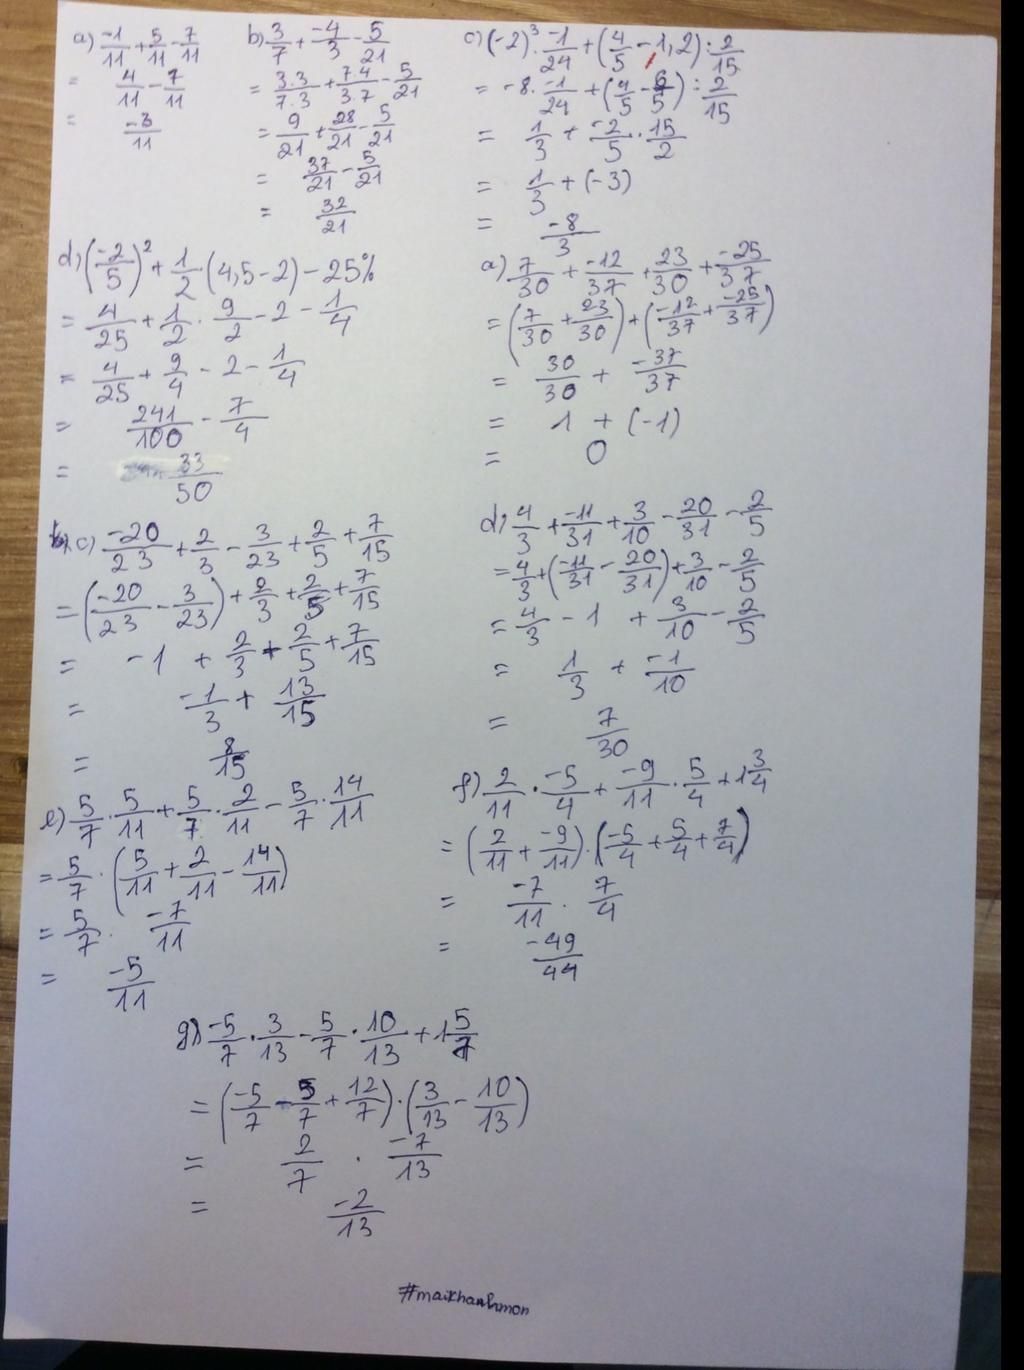 a) -1/11 + 5/11 - 7/11
= 4/11 - 7/11
= -3/11
b) 3/7 + -4/3 - 5/21
= 3.3/7.3 + 7.4/3.7 - 5/21
= 9/21 + 28/21 - 5/21
= 37/21 - 5/21
= 32/21
c) (-2)³ . -1/24 + (4/5 - 1,2) : 2/15
= -8 . -1/24 + (4/5 - 6/5) : 2/15
= 1/3 + -2/5 . 15/2
= 1/3 + (-3)
= -8/3
d) (-2/5)² + 1/2 . (4,5 - 2) - 25%
= 4/25 + 1/2 . 9/2 - 2 - 1/4
= 4/25 + 9/4 - 2 - 1/4
= 241/100 - 7/4
= 33/50
a) 7/30 + -12/37 + 23/30 + -25/37
= (7/30 + 23/30) + (-12/37 + -25/37)
= 30/30 + -37/37
= 1 + (-1)
= 0
c) -20/23 + 2/3 - 3/23 + 2/5 + 7/15
= (-20/23 - 3/23) + 2/3 + 2/5 + 7/15
= -1 + 2/3 + 2/5 + 7/15
= -1/3 + 13/15
= 8/15
d) 4/3 + -11/31 + 3/10 - 20/31 - 2/5
= 4/3 + (-11/31 - 20/31) + 3/10 - 2/5
= 4/3 - 1 + 3/10 - 2/5
= 1/3 + -1/10
= 7/30
e) 5/7 . 5/11 + 5/7 . 2/11 - 5/7 . 14/11
= 5/7 . (5/11 + 2/11 - 14/11)
= 5/7 . -7/11
= -5/11
f) 2/11 . -5/4 + -9/11 . 5/4 + 1 3/4
= (2/11 + -9/11) . (-5/4 + 5/4 + 7/4)
= -7/11 . 7/4
= -49/44
g) -5/7 . 3/13 - 5/7 . 10/13 + 1 5/7
= (-5/7 - 5/7 + 12/7) . (3/13 - 10/13)
= 2/7 . -7/13
= -2/13
#maikhanhmon